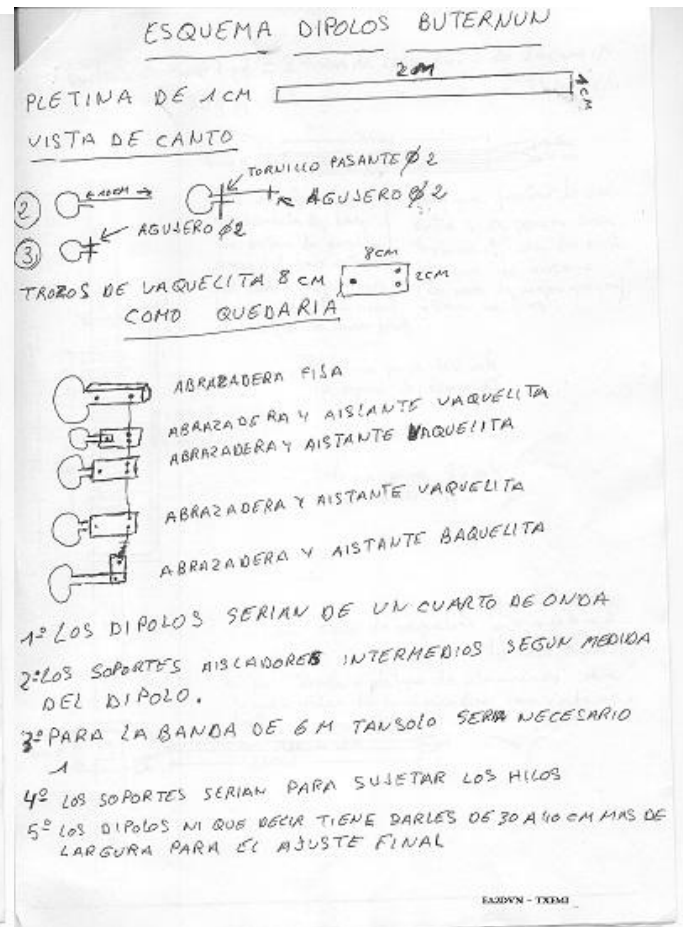 ESQUEMA DIPOLOS BUTERNUN
2M
PLETINA DE 1CM
1CM
VISTA DE CANTO
2 10CM
TORNILLO PASANTE Ø 2
AGUJERO Ø 2
3 AGUJERO Ø2
8CM
TROZOS DE VAQUELITA 8 CM
2CM
COMO QUEDARIA
ABRAZADERA FISA
ABRAZADERA Y AISLANTE VAQUELITA
ABRAZADERA Y AISTANTE VAQUELITA
ABRAZADERA Y AISTANTE VAQUELITA
ABRAZADERA Y AISTANTE BAQUELITA
1º LOS DIPOLOS SERIAN DE UN CUARTO DE ONDA
2º LOS SOPORTES AISLADORES INTERMEDIOS SEGUN MEDIDA
DEL DIPOLO.
3º PARA LA BANDA DE 6 M TANSOLO SERA NECESARIO
1
4º LOS SOPORTES SERIAN PARA SUJETAR LOS HILOS
5º LOS DIPOLOS NI QUE DECIR TIENE DARLES DE 30 A 40 CM MAS DE
LARGURA PARA EL AJUSTE FINAL
EA2DVN - TXEMI